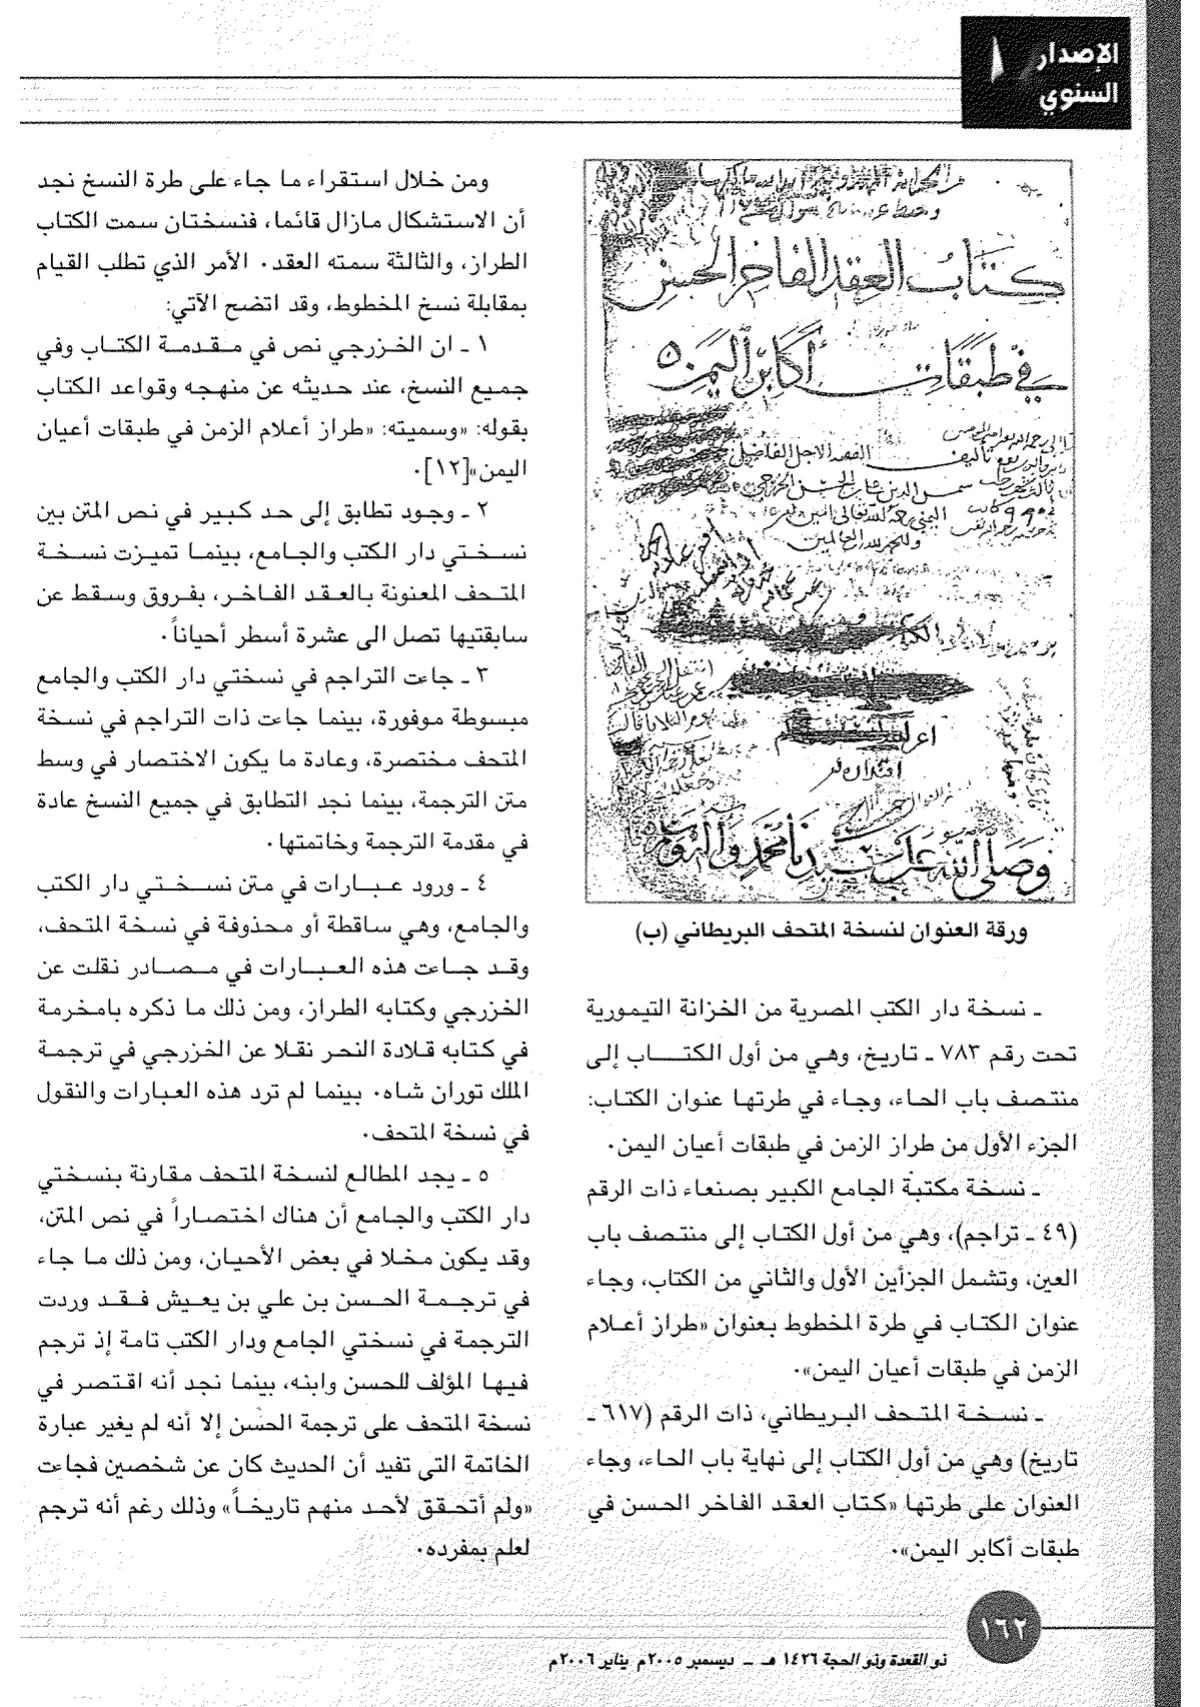 الإصدار ١
السنوي
كتاب العقد الفاخر الحسن
في طبقات أكابر اليمن
تأليف الفقيه الاجل الفاضل
شمس الدين علي بن الحسن الخزرجي
وصلى الله على سيدنا محمد وآله وسلم
ورقة العنوان لنسخة المتحف البريطاني (ب)
ـ نسخة دار الكتب المصرية من الخزانة التيمورية
تحت رقم ٧٨٣ ـ تاريخ، وهي من أول الكتـــاب إلى
منتصف باب الحاء، وجاء في طرتها عنوان الكتاب:
الجزء الأول من طراز الزمن في طبقات أعيان اليمن.
ـ نسخة مكتبة الجامع الكبير بصنعاء ذات الرقم
(٤٩ ـ تراجم)، وهي من أول الكتاب إلى منتصف باب
العين، وتشمل الجزأين الأول والثاني من الكتاب، وجاء
عنوان الكتاب في طرة المخطوط بعنوان «طراز أعلام
الزمن في طبقات أعيان اليمن».
ـ نسخة المتحف البريطاني، ذات الرقم (٦١٧ ـ
تاريخ) وهي من أول الكتاب إلى نهاية باب الحاء، وجاء
العنوان على طرتها «كتاب العقد الفاخر الحسن في
طبقات أكابر اليمن».
ومن خلال استقراء ما جاء على طرة النسخ نجد
أن الاستشكال مازال قائما، فنسختان سمت الكتاب
الطراز، والثالثة سمته العقد. الأمر الذي تطلب القيام
بمقابلة نسخ المخطوط، وقد اتضح الآتي:
١ ـ ان الخزرجي نص في مقدمة الكتاب وفي
جميع النسخ، عند حديثه عن منهجه وقواعد الكتاب
بقوله: «وسميته: «طراز أعلام الزمن في طبقات أعيان
اليمن»[١٢].
٢ ـ وجود تطابق إلى حد كبير في نص المتن بين
نسختي دار الكتب والجامع، بينما تميزت نسخة
المتحف المعنونة بالعقد الفاخر، بفروق وسقط عن
سابقتيها تصل الى عشرة أسطر أحياناً.
٣ ـ جاءت التراجم في نسختي دار الكتب والجامع
مبسوطة موفورة، بينما جاءت ذات التراجم في نسخة
المتحف مختصرة، وعادة ما يكون الاختصار في وسط
متن الترجمة، بينما نجد التطابق في جميع النسخ عادة
في مقدمة الترجمة وخاتمتها.
٤ ـ ورود عبـارات في متن نسختي دار الكتب
والجامع، وهي ساقطة أو محذوفة في نسخة المتحف،
وقد جاءت هذه العبارات في مصادر نقلت عن
الخزرجي وكتابه الطراز، ومن ذلك ما ذكره بامخرمة
في كتابه قلادة النحر نقلا عن الخزرجي في ترجمة
الملك توران شاه. بينما لم ترد هذه العبارات والنقول
في نسخة المتحف.
٥ ـ يجد المطالع لنسخة المتحف مقارنة بنسختي
دار الكتب والجامع أن هناك اختصاراً في نص المتن،
وقد يكون مخلا في بعض الأحيان، ومن ذلك ما جاء
في ترجمة الحسن بن علي بن يعيش فقد وردت
الترجمة في نسختي الجامع ودار الكتب تامة إذ ترجم
فيها المؤلف للحسن وابنه، بينما نجد أنه اقتصر في
نسخة المتحف على ترجمة الحسن إلا أنه لم يغير عبارة
الخاتمة التي تفيد أن الحديث كان عن شخصين فجاءت
«ولم أتحقق لأحد منهم تاريخاً» وذلك رغم أنه ترجم
لعلم بمفرده.
١٦٢
ذو القعدة وذو الحجة ١٤٢٦ هـ ـ ديسمبر ٢٠٠٥م يناير ٢٠٠٦م